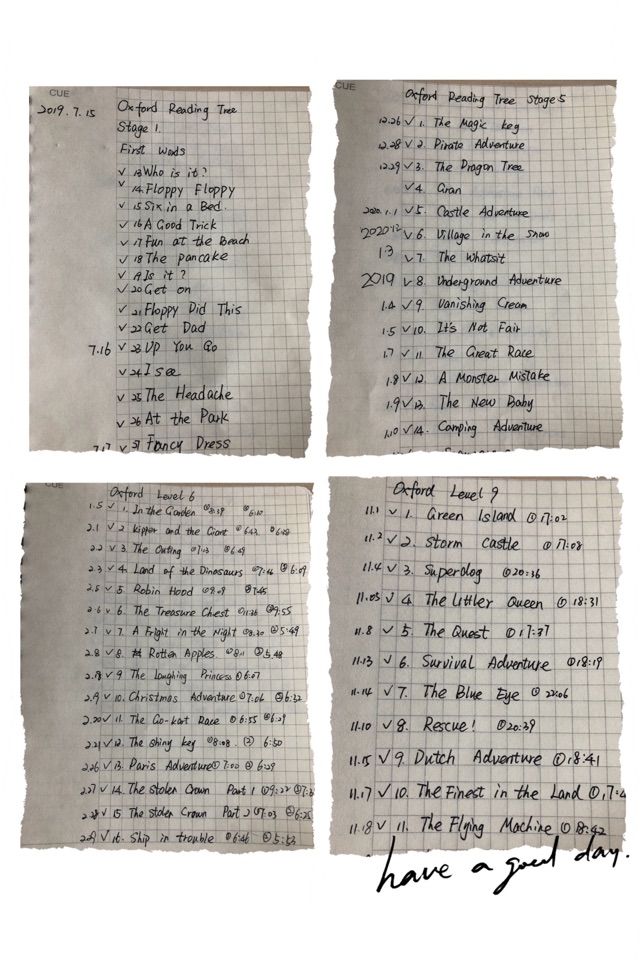 CUE
2019.7.15 Oxford Reading Tree
Stage 1.
First Words
✓ 13 Who is it?
✓ 14. Floppy Floppy
✓ 15 Six in a Bed.
✓ 16 A Good Trick
✓ 17 Fun at the Beach
✓ 18 The pancake
✓ 19 Is it?
✓ 20 Get on
✓ 21 Floppy Did This
✓ 22 Get Dad
7.16 ✓ 23 Up You Go
✓ 24 I see
✓ 25 The Headache
✓ 26 At the Park
7.17 ✓ Fancy Dress
CUE
Oxford Reading Tree Stage 5
12.26 ✓ 1. The Magic key
12.28 ✓ 2. Pirate Adventure
12.29 ✓ 3. The Dragon Tree
✓ 4. Gran
2020.1.1 ✓ 5. Castle Adventure
2020 1.2 ✓ 6. Village in the Snow
1.3 ✓ 7. The Whatsit
2019 ✓ 8. Underground Adventure
1.4 ✓ 9. Vanishing Cream
1.5 ✓ 10. It's Not Fair
1.7 ✓ 11. The Great Race
1.8 ✓ 12. A Monster Mistake
1.9 ✓ 13. The New Baby
1.10 ✓ 14. Camping Adventure
CUE
Oxford Level 6
1.5 ✓ 1. In the Garden
2.1 ✓ 2. Kipper and the Giant
2.2 ✓ 3. The Outing
2.3 ✓ 4. Land of the Dinosaurs ①7:46 ②6:09
2.5 ✓ 5. Robin Hood
2.6 ✓ 6. The Treasure Chest ②9:55
2.7 ✓ 7. A Fright in the Night ①8:20 ②5:49
2.8 ✓ 8. Rotten Apples ②5:48
✓ 9. The Laughing Princess ①6:07
2.19 ✓ 10. Christmas Adventure ①7:06 ②6:32
2.20 ✓ 11. The Go-kart Race ①6:55 ②6:29
2.21 ✓ 12. The shiny key ①8:08 ② 6:50
2.26 ✓ 13. Paris Adventure ①7:00 ②6:29
2.27 ✓ 14. The stolen Crown Part 1 ①9:22
2.28 ✓ 15 The stolen Crown Part 2 ①7:03
2.29 ✓ 16. Ship in trouble ①6:46 ②5:53
Oxford Level 9
11.1 ✓ 1. Green Island ①17:02
11.2 ✓ 2. Storm Castle ①17:08
11.4 ✓ 3. Superdog ①20:36
11.05 ✓ 4. The Littler Queen ①18:31
11.8 ✓ 5. The Quest ①17:37
11.13 ✓ 6. Survival Adventure ①18:19
11.14 ✓ 7. The Blue Eye ①22:06
11.10 ✓ 8. Rescue! ①20:39
11.15 ✓ 9. Dutch Adventure ①18:41
11.17 ✓ 10. The Finest in the Land
11.18 ✓ 11. The Flying Machine ①18:42
have a good day.